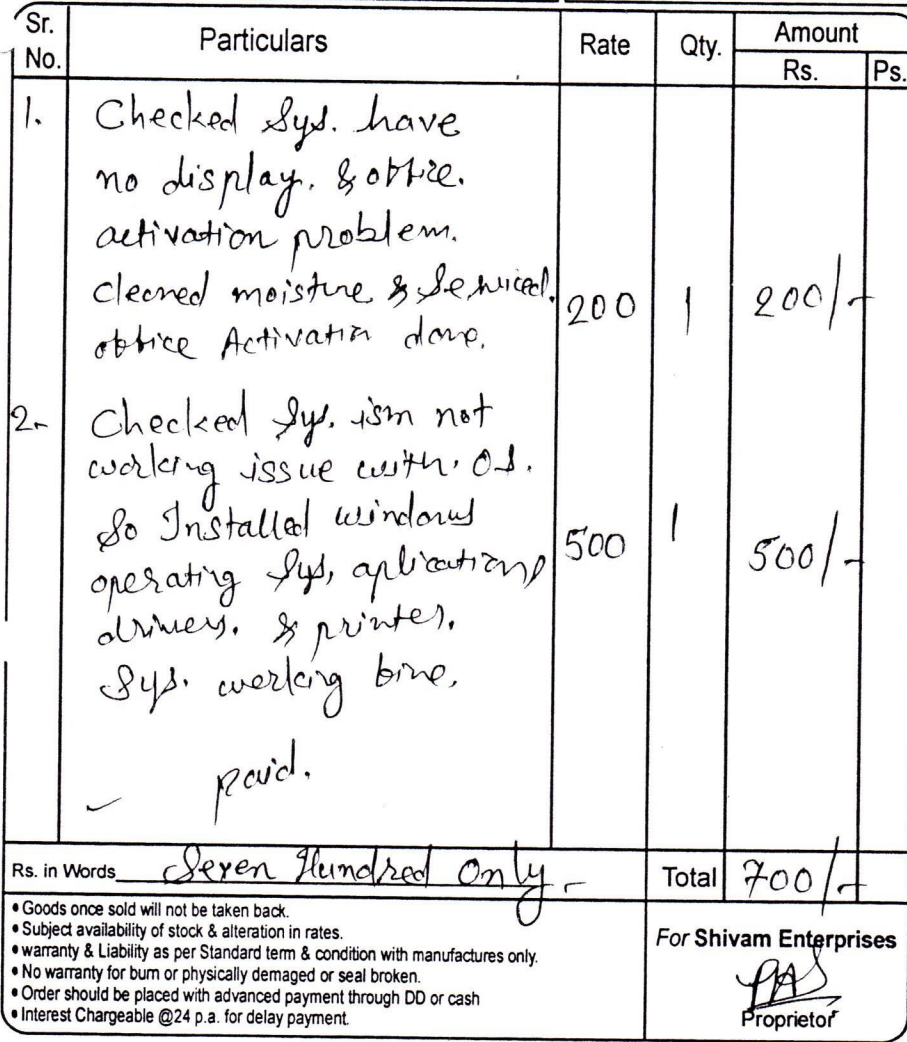 Sr. No. Particulars Rate Qty. Amount
Rs. Ps.
1. Checked Sys. have
no display. & office.
activation problem.
cleaned moisture & Serviced. 200 1 200/-
office Activation done.
2- Checked Sys. ism not
working issue with. OS.
So Installed windows
operating Sys, aplications 500 1 500/-
drivers. & printer.
Sys. working fine.
paid.
Rs. in Words Seven Hundred Only - Total 700/-
• Goods once sold will not be taken back.
• Subject availability of stock & alteration in rates.
• warranty & Liability as per Standard term & condition with manufactures only.
• No warranty for burn or physically demaged or seal broken.
• Order should be placed with advanced payment through DD or cash
• Interest Chargeable @24 p.a. for delay payment.
For Shivam Enterprises
Proprietor